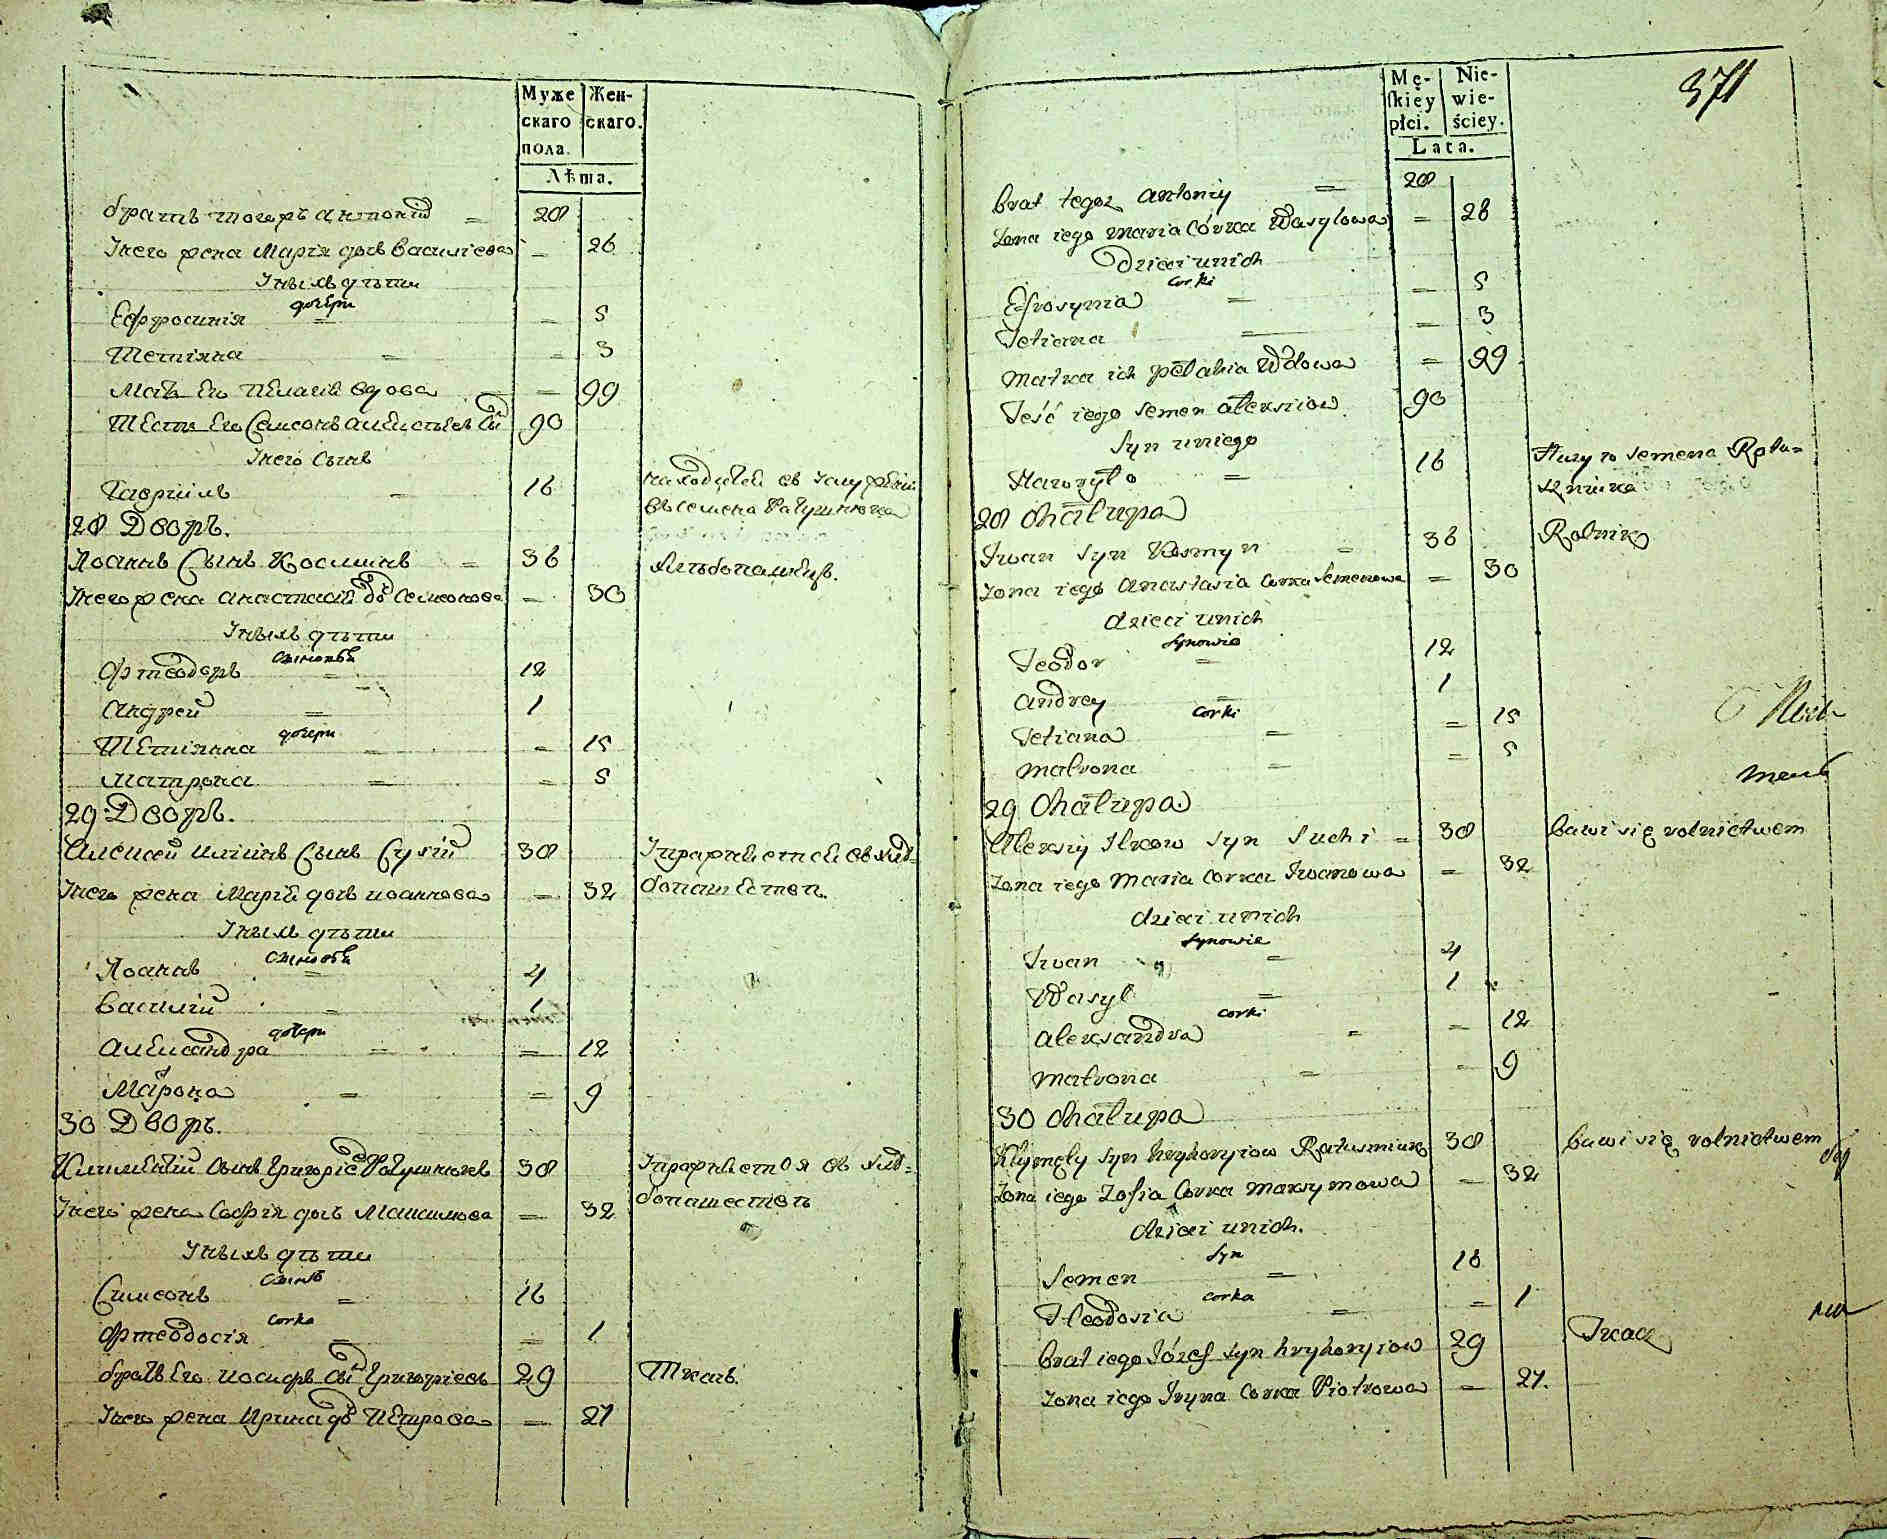 Муже Жен-
скаго скаго.
пола.
Лѣта.
братъ тогожъ Антоній = 28
У него жена Марія дочь Василіева = 26
У нихъ дѣти
дочери
Еффросинія = = 5
Тетіяна = = 3
Мать Его Пелагія вдова = 99
Тесть Его Семіонъ Алексѣевъ 90
У него сынъ
Гавріилъ = 16
находится въ услуженіи
въ семена Ратушнюка
28 Дворъ.
Иоаннъ Сынъ Косминъ = 36 Хлѣбопашецъ.
У него жена Анастасія до Семіонова = 30
У нихъ дѣти
Сыновья
Фтеодоръ = 12
Андрей = 1
дочери
Тетіянна = = 15
Матрона = = 5
29 Дворъ.
Алексѣй Иліинъ Сынъ Сухій 38 Упражняется въ хлѣ=
У него жена Марія дочь Иоаннова = 32 бопашествѣ.
У нихъ дѣти
Сыновья
Иоаннъ = 4
Василій = 1
дочери
Александра = = 12
Матрона = = 9
30 Дворъ.
Климентій сынъ Григоріевъ Ратушнюкъ 38 Упражняется въ хлѣ=
У него жена Софія дочь Максимова = 32 бопашествѣ
У нихъ дѣти
Сынъ
Симеонъ = 16
corka
Фтеодосія = = 1
братъ Его Иосифъ Григоріевъ 29 Ткачъ.
У него жена Ирина до Петрова = 27
371
Mę- Nie-
skiey wie-
płci. ściey.
Lata.
brat tegoż Antoniy = 28
żona iego Maria Córka Wasylowa = 26
Dzieci u nich
Corki
Efrosynia = = 5
Tetiana = = 3
Matka ich Pełahia Wdowa = 99
Teść iego Semen Alexiiow 90
Syn u niego
Hawryło = 16 Służy w Semena Ratu=
sznuka
28 Chałupa
Iwan Syn Kosmyn = 36 Rolnik
Zona iego Anastasia Corka Semenowa = 30
dzieci u nich
Synowie
Teodor = 12
Andrey = 1
Corki
Tetiana = = 15
Matrona = = 5
29 Chałupa
Alexiy Ilkow Syn Suchi = 38 bawi się rolnictwem
Zona iego Maria Corka Iwanowa = 32
dzieci u nich
Synowie
Iwan = 4
Wasyl = 1
Corki
Alexandra = = 12
Matrona = = 9
30 Chałupa
Klymęty Syn Hryhoryiow Ratuszniuk 38 bawi się rolnictwem
Zona iego Zofia Corka Maxymowa = 32
dzieci u nich.
Syn
Semen = 16
corka
Fteodosia = = 1
brat iego Józef Syn Hryhoryiow 29 Tkacz
Zona iego Iryna Corka Piotrowa = 27.